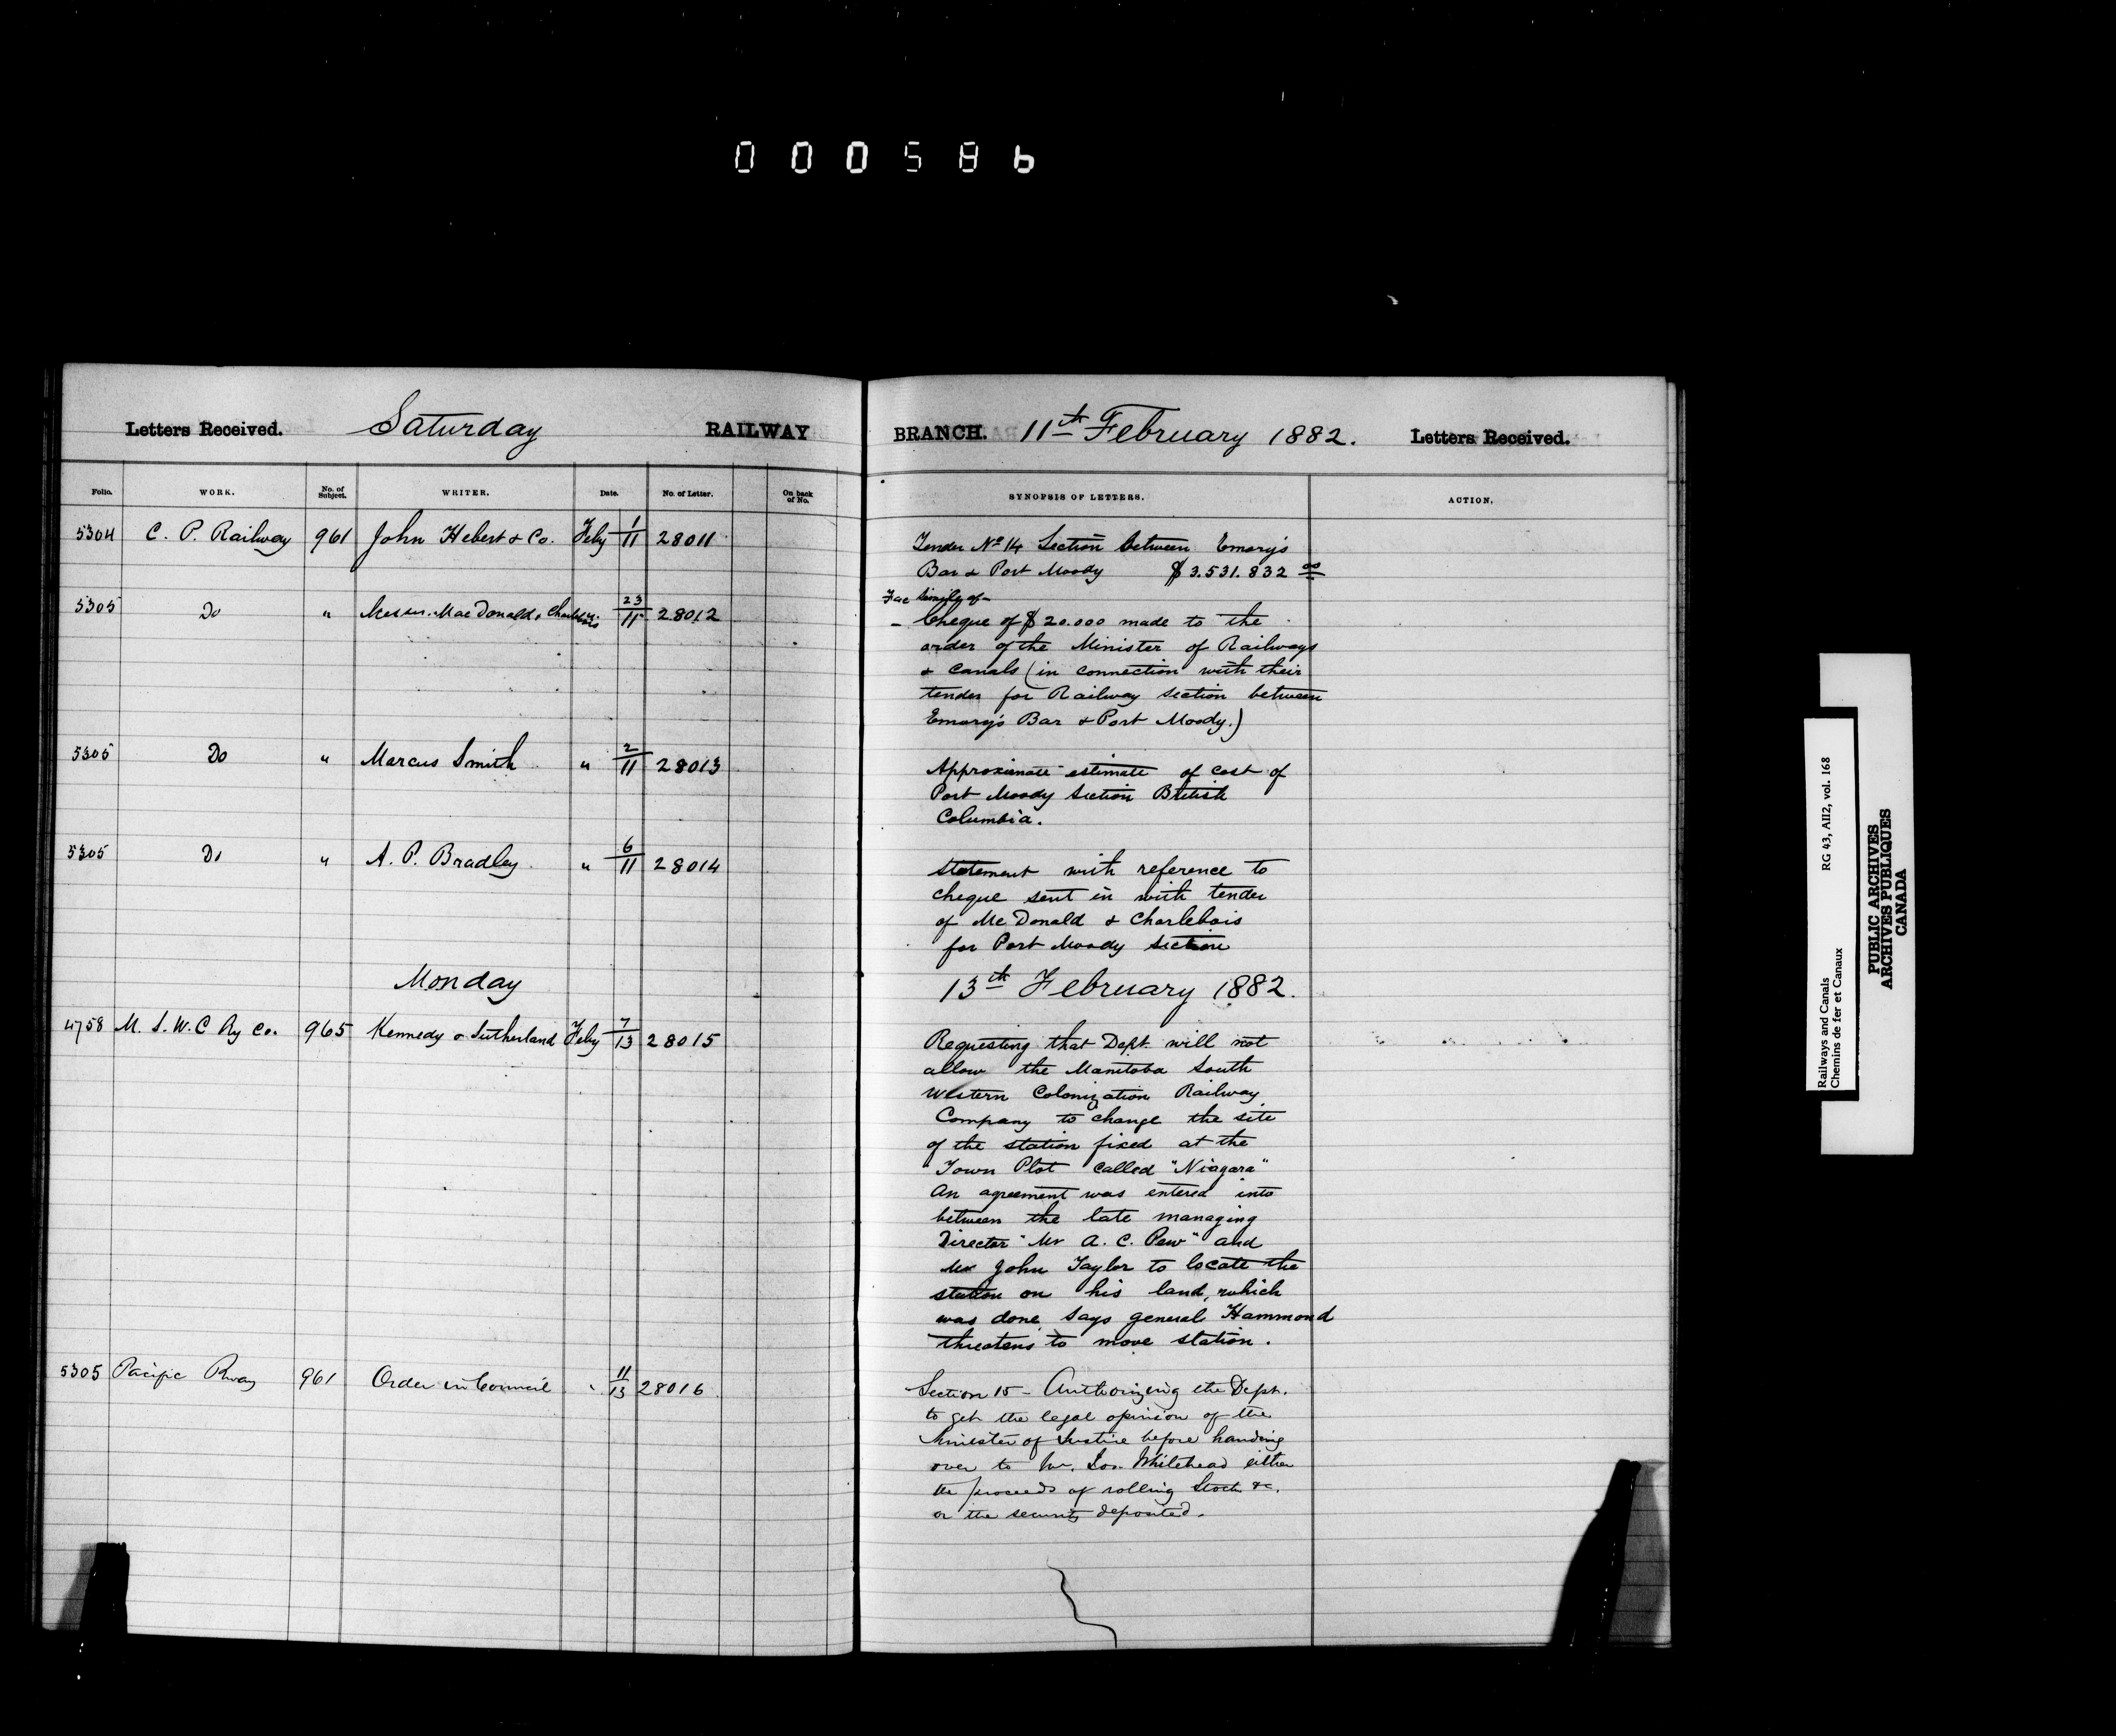 000586
Letters Received. Saturday RAILWAY BRANCH. 11th February 1882. Letters Received.
Folio. WORK. No. of Subject. WRITER. Date. No. of Letter. On back of No. SYNOPSIS OF LETTERS. ACTION.
5304 C. P. Railway 961 John Hebert & Co. Feby 1/11 28011
Tender No 14 Section between Emory's
Bar & Port Moody $3.531.832 00
5305 Do " Messrs. MacDonald & Charlebois 23/11 28012
Fac simily of
- Cheque of $20.000 made to the
order of the Minister of Railways
& Canals (in connection with their
tender for Railway section between
Emory's Bar & Port Moody.)
5305 Do " Marcus Smith " 2/11 28013
Approximate estimate of cost of
Port Moody Section British
Columbia.
5305 Do " A. P. Bradley " 6/11 28014
Statement with reference to
cheque sent in with tender
of McDonald & Charlebois
for Port Moody section
Monday 13th February 1882.
4758 M. S. W. C Ry Co. 965 Kennedy & Sutherland Feby 7/13 28015
Requesting that Dept. will not
allow the Manitoba South
Western Colonization Railway
Company to change the site
of the station fixed at the
Town Plot called "Niagara"
An agreement was entered into
between the late managing
Director "Mr A. C. Pew" and
Mr John Taylor to locate the
station on his land, which
was done, says general Hammond
threatens to move station.
5305 Pacific Rway 961 Order in Council " 11/13 28016
Section 15 - Authorizing the Dept.
to get the legal opinion of the
Minister of Justice before handing
over to Mr. Jos. Whitehead either
the proceeds of rolling Stock &c.
or the security deposited.
Railways and Canals RG 43, AII2, vol. 168
Chemins de fer et Canaux
PUBLIC ARCHIVES
ARCHIVES PUBLIQUES
CANADA